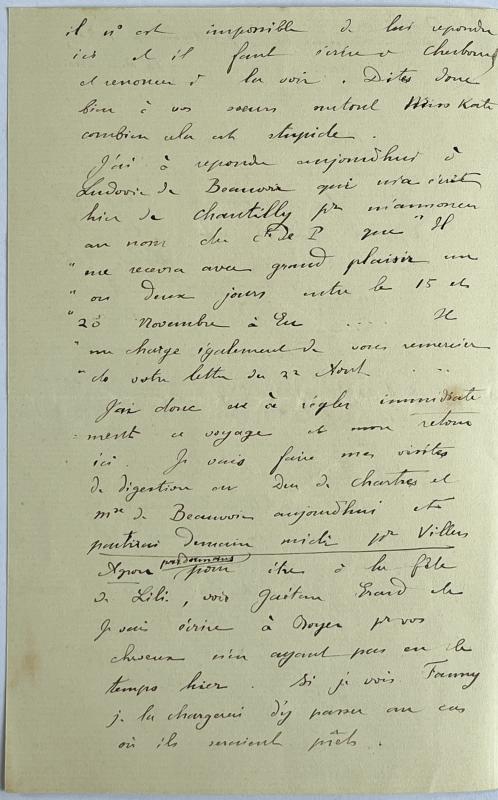 il m'est impossible de lui repondre
ici et il faut écrire à Cherbourg
et renoncer à la voir. Dites donc
bien à vos soeurs surtout Miss Kate
combien cela est stupide.
J'ai à repondre aujourd'hui à
Ludovic de Beauvoir qui m'a écrit
hier de Chantilly pr m'annoncer
au nom du Cte de P que " Il
" me recevra avec grand plaisir un
" ou deux jours entre le 15 et
" 20 Novembre à Eu .... Il
" me charge également de vous remercier
" de votre lettre du 22 Aout ...
J'ai donc eu à régler immédiate
= ment ce voyage et mon retour
ici. Je vais faire mes visites
de digestion au Duc de Chartres et
Mme de Beauvoir aujourd'hui et
partirai demain midi pr Villers
Agron pour être à la fête
de Lili, voir Gaëtan Erard etc
Je vais écrire à Royer pr vos
cheveux n'en ayant pas eu le
temps hier. Si je vois Fanny
je la chargerai d'y passer au cas
où ils seraient prêts.